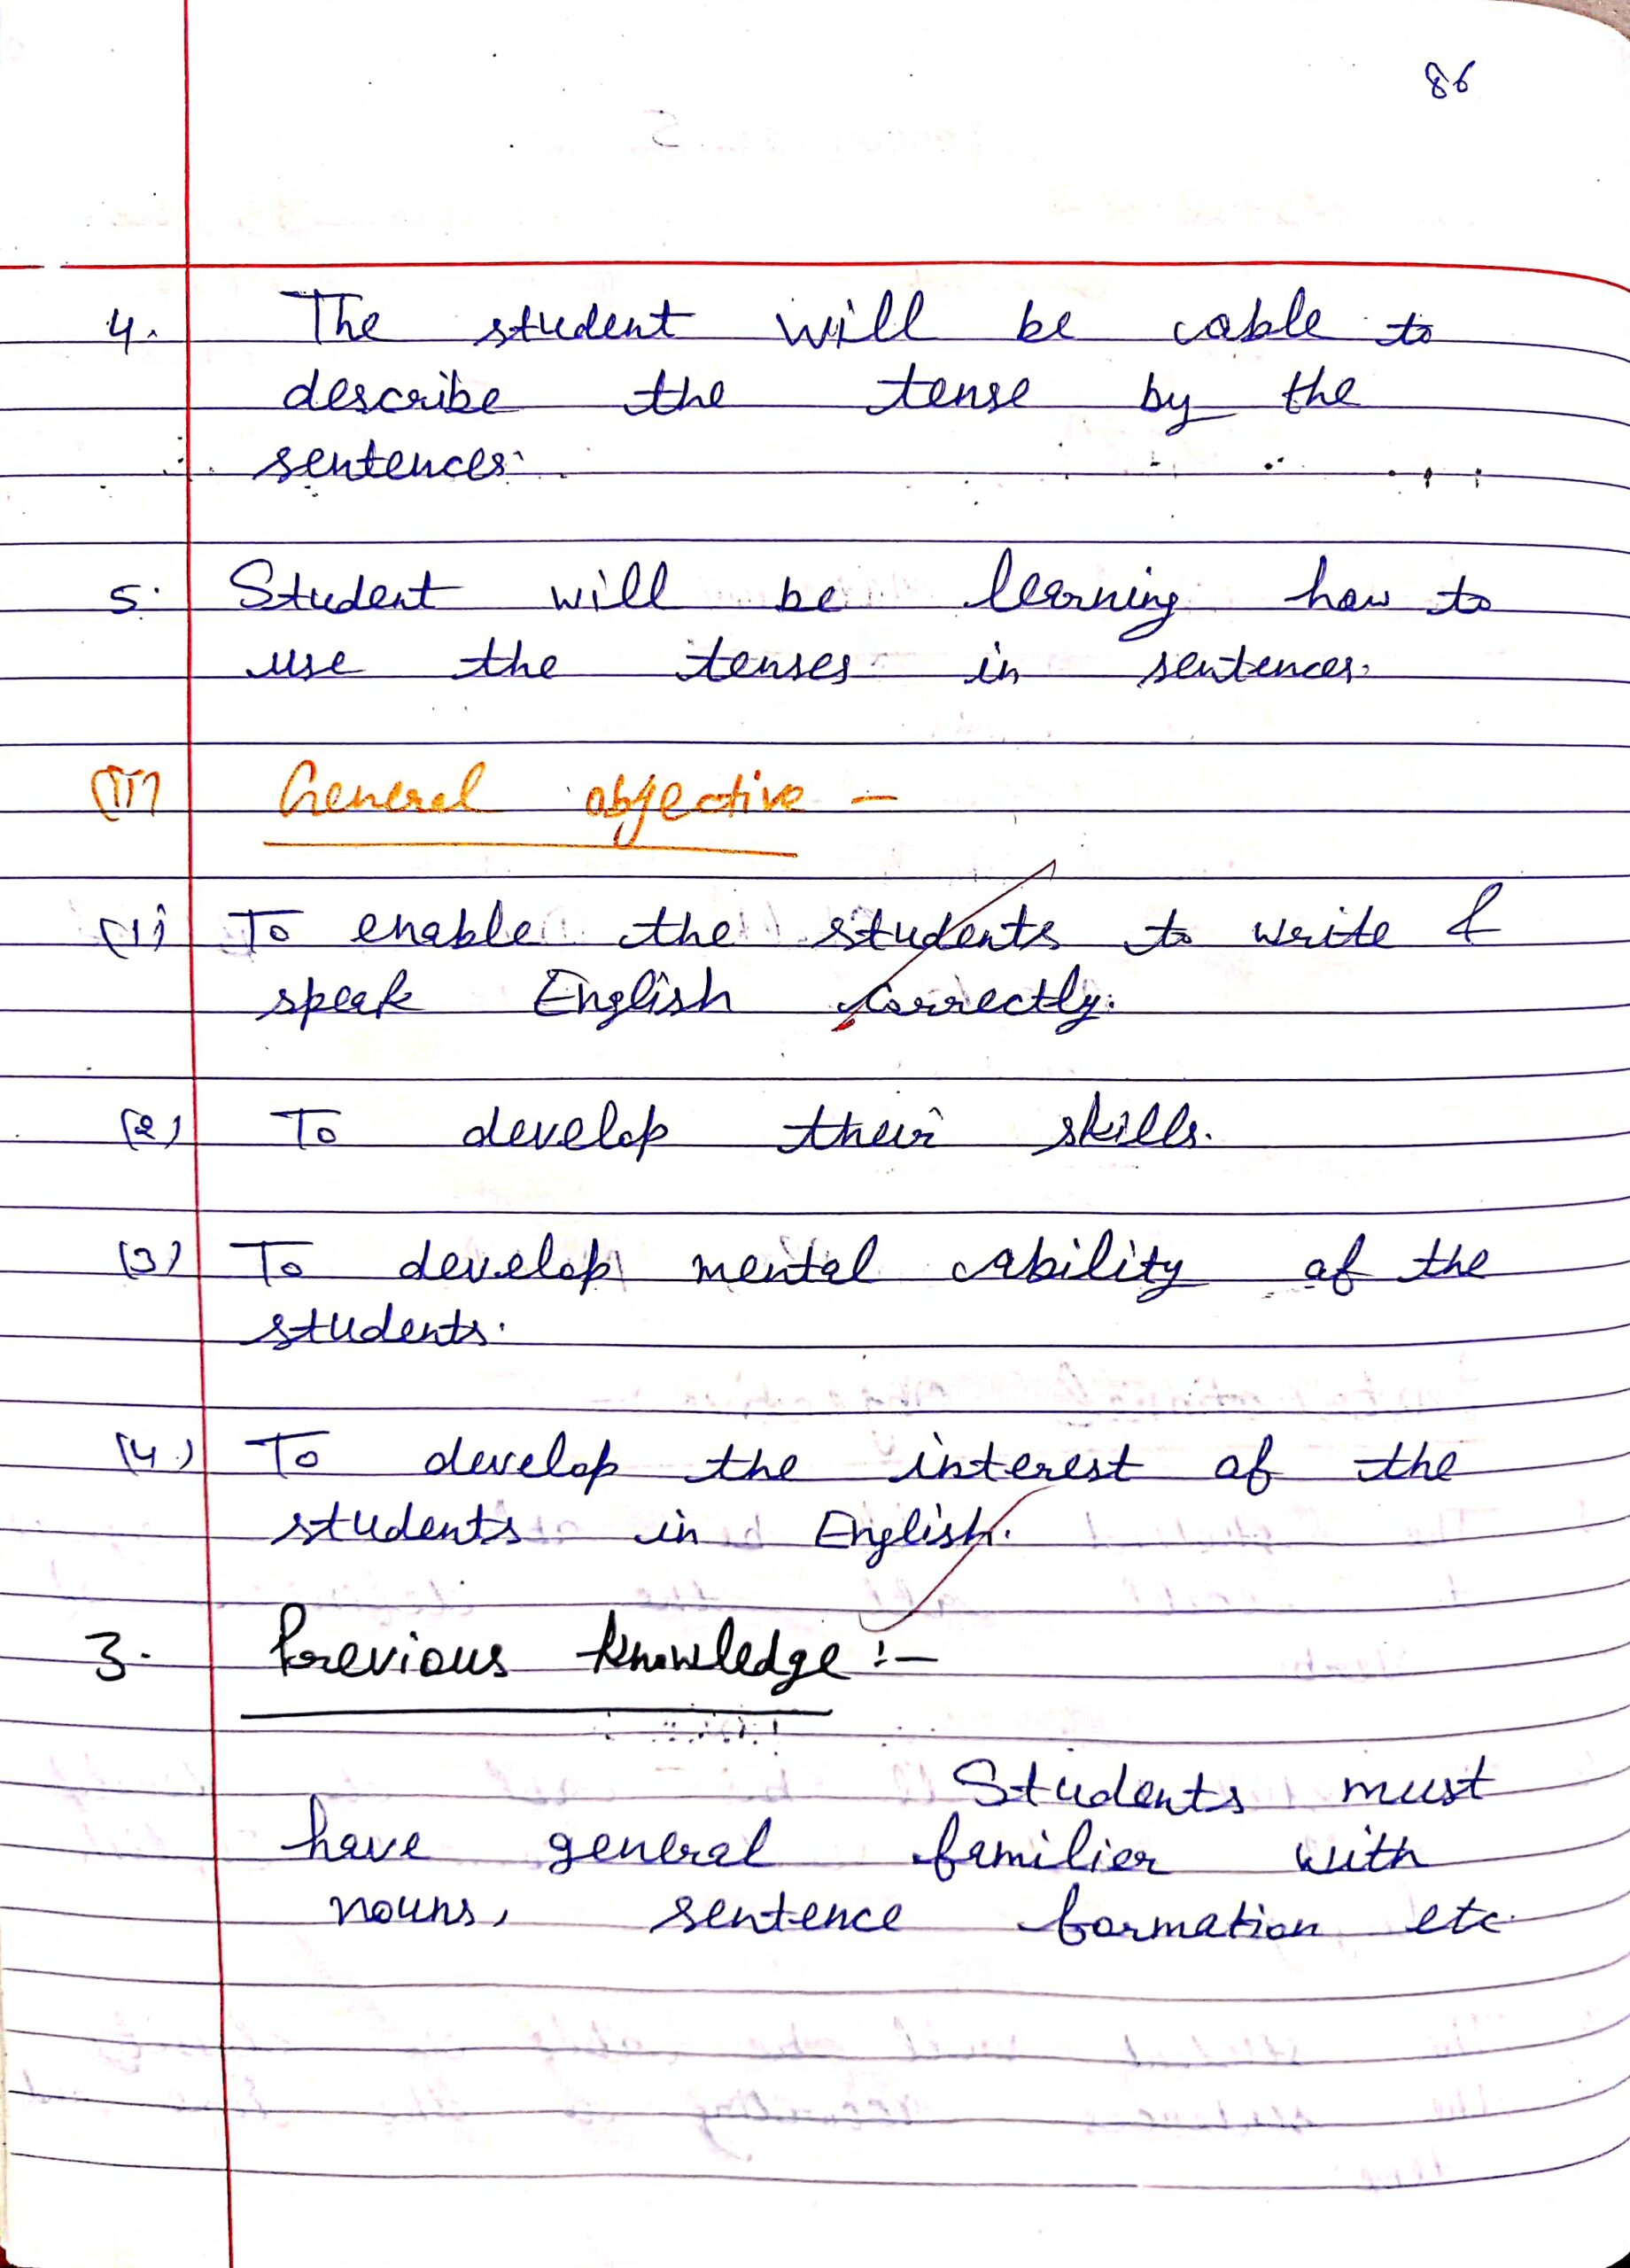 86
4. The student will be able to
describe the tense by the
sentences.
5. Student will be learning how to
use the tenses in sentences.
(II) General objective –
(1) To enable the students to write &
speak English correctly.
(2) To develop their skills.
(3) To develop mental ability of the
students.
(4.) To develop the interest of the
students in English.
3. Previous knowledge :–
Students must
have general familier with
nouns, sentence formation etc.